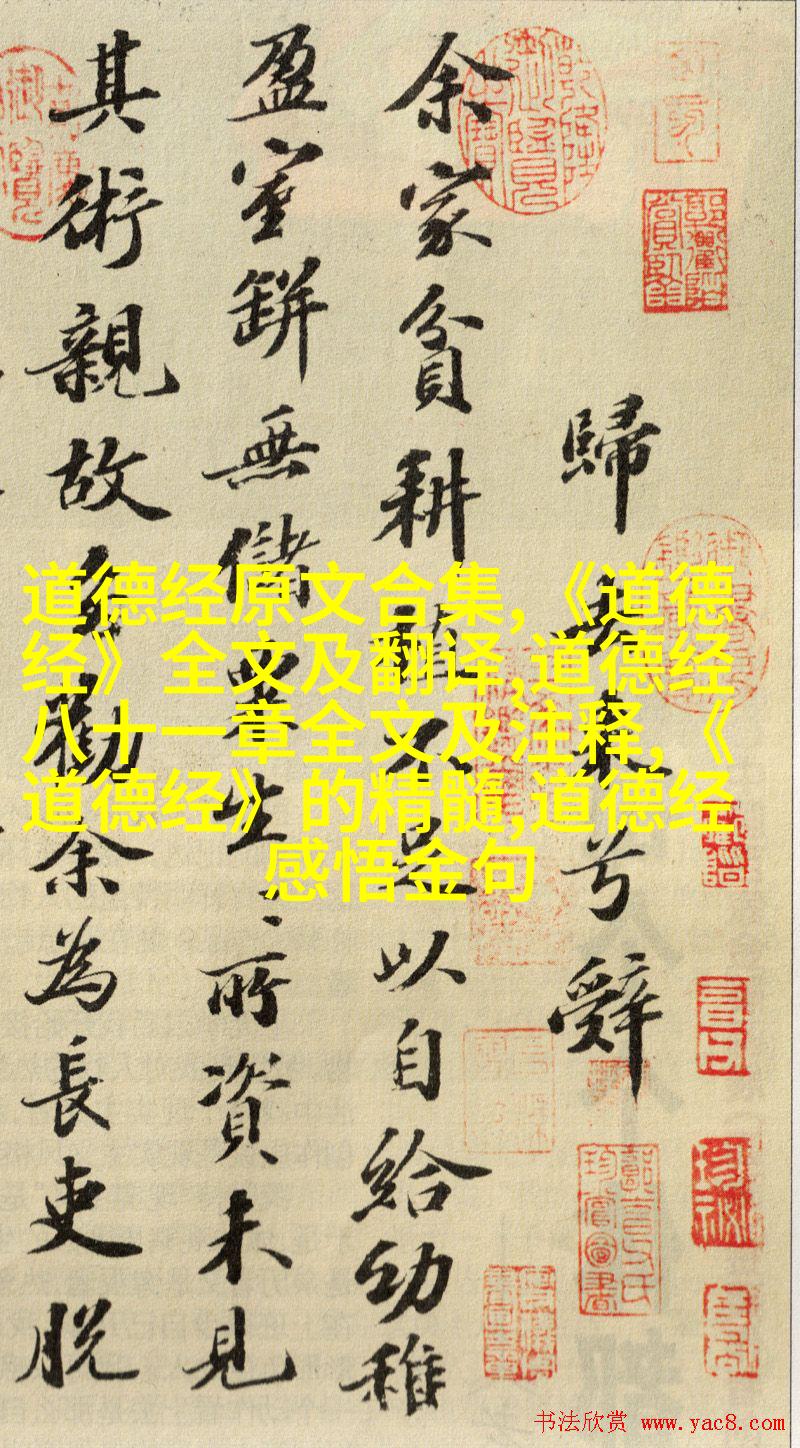 歸去來兮辭
余家貧耕植不足以自給幼稚
盈室缾無儲粟生〻所資未見
其術親故多勸余為長吏脫
道德经原文合集,《道德
经》全文及翻译,道德经
八十一章全文及注释,《
道德经》的精髓,道德经
感悟金句
书法欣赏 www.yac8.com